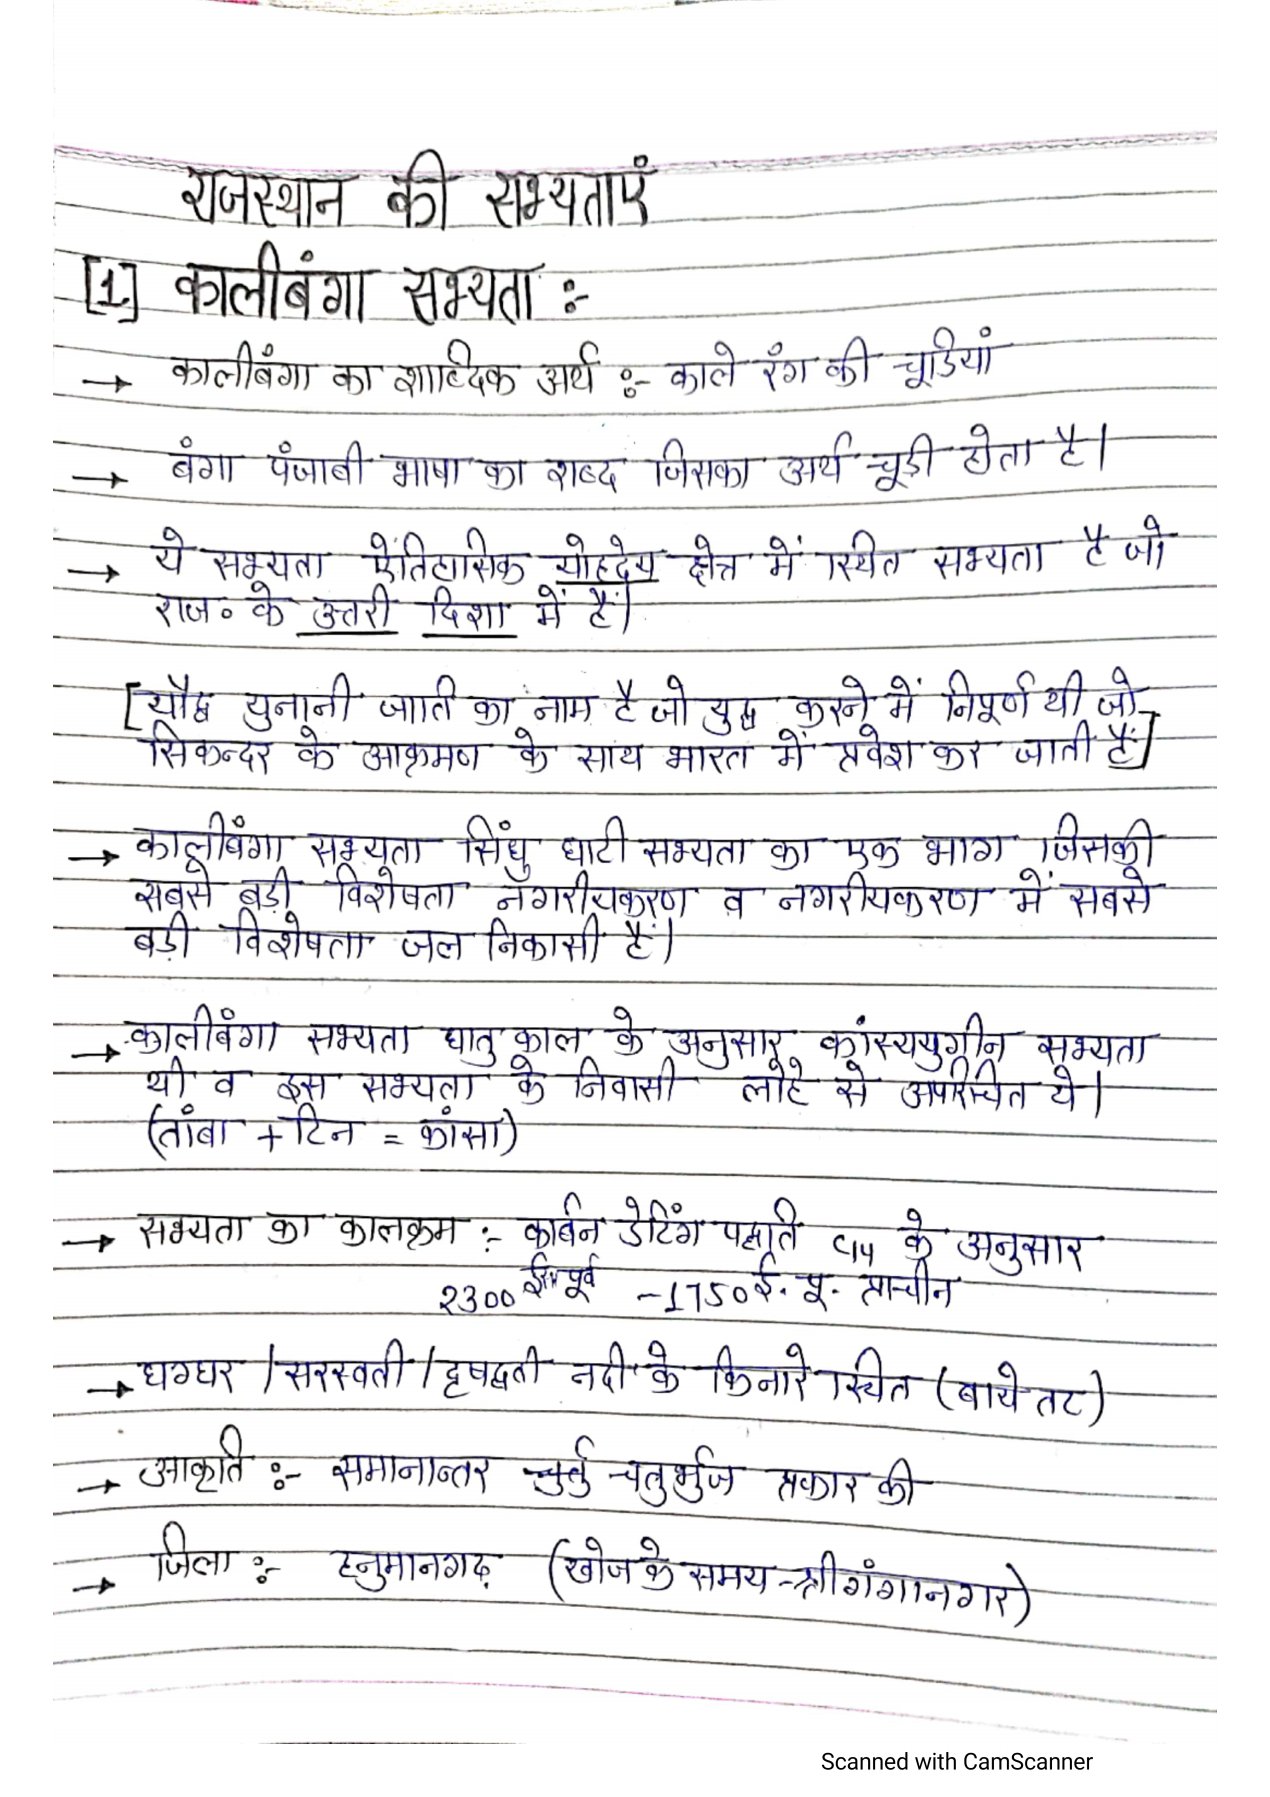 राजस्थान की सभ्यताएं
[1] कालीबंगा सभ्यता :-
→ कालीबंगा का शाब्दिक अर्थ :- काले रंग की चूडियां
→ बंगा पंजाबी भाषा का शब्द जिसका अर्थ चूड़ी होता है।
→ ये सभ्यता ऐतिहासिक योहदेय क्षेत्र में स्थित सभ्यता है जो
राज॰ के उत्तरी दिशा में हैं।
[यौद्ध युनानी जाति का नाम है जो युद्ध करने में निपूर्ण थी जो
सिकन्दर के आक्रमण के साथ भारत में प्रवेश कर जाती हैं]
→ कालीबंगा सभ्यता सिंधु घाटी सभ्यता का एक भाग जिसकी
सबसे बड़ी विशेषता नगरीयकरण व नगरीयकरण में सबसे
बड़ी विशेषता जल निकासी हैं।
→ कालीबंगा सभ्यता धातु काल के अनुसार कांस्ययुगीन सभ्यता
थी व इस सभ्यता के निवासी लोहे से अपरिचित थे।
(तांबा + टिन = कांसा)
→ सभ्यता का कालक्रम :- कार्बन डेटिंग पद्धति C14 के अनुसार
2300 ई॰ पूर्व - 1750 ई. पू. प्राचीन
→ घग्घर / सरस्वती / दृषद्वती नदी के किनारे स्थित (बाये तट)
→ आकृति :- समानान्तर चतुर्भुज प्रकार की
→ जिला :- हनुमानगढ़ (खोज के समय - श्रीगंगानगर)
Scanned with CamScanner